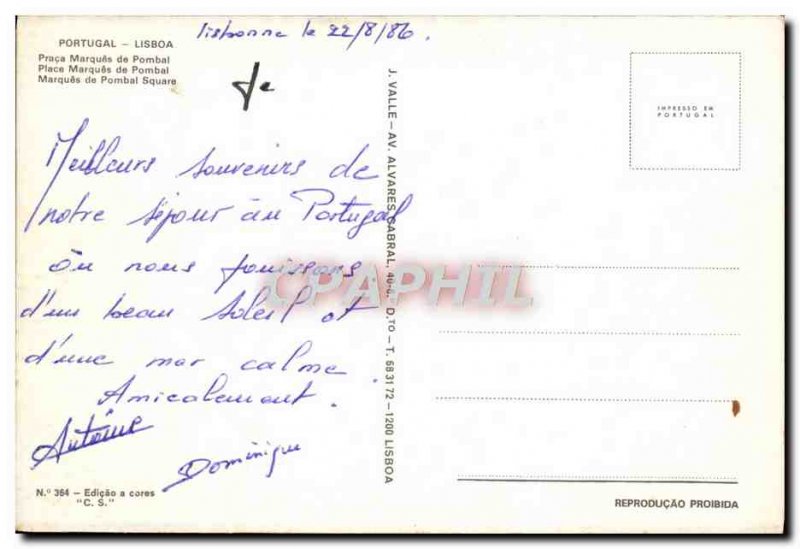 Lisbonne le 22/8/86.
PORTUGAL – LISBOA
Praça Marquês de Pombal
Place Marquês de Pombal
Marquês de Pombal Square
Meilleurs souvenirs de
notre séjour au Portugal
où nous jouissons
d'un beau soleil et
d'une mer calme.
Amicalement.
Antoine
Dominique
N.º 364 – Edição a cores
"C. S."
J. VALLE – AV. ALVARES CABRAL, D.TO – T. 683172 – 1200 LISBOA
IMPRESSO EM
PORTUGAL
CPAPHIL
REPRODUÇÃO PROIBIDA